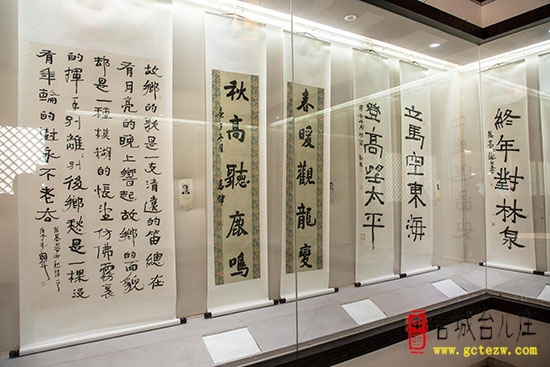 終年對林泉
立馬空東海
登高望太平
春暖觀龍變
秋高聽鹿鳴
故鄉的歌是一支清遠的笛總在
有月亮的晚上響起故鄉的面貌
却是一種模糊的悵望仿佛霧裏
的揮手別離別後鄉愁是一棵沒
有年輪的樹永不老去
中国
古城台儿庄
www.gctezw.com